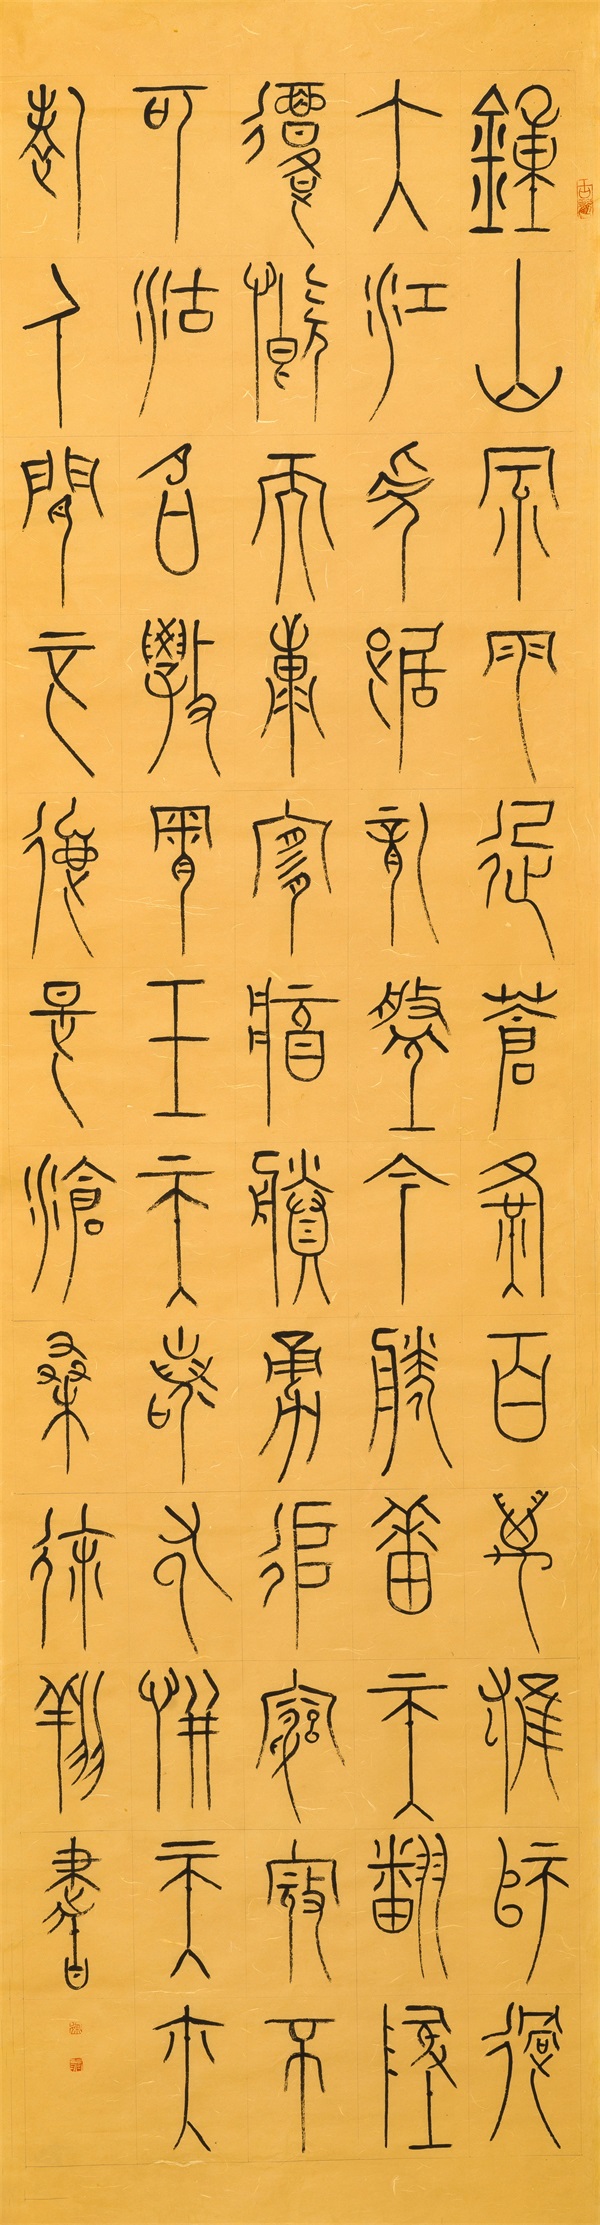 鍾山風雨起蒼黃百萬雄師過
大江虎踞龍盤今勝昔天翻地
覆慨而慷宜將剩勇追窮寇不
可沽名學霸王天若有情天亦
老人間正道是滄桑徐翔書